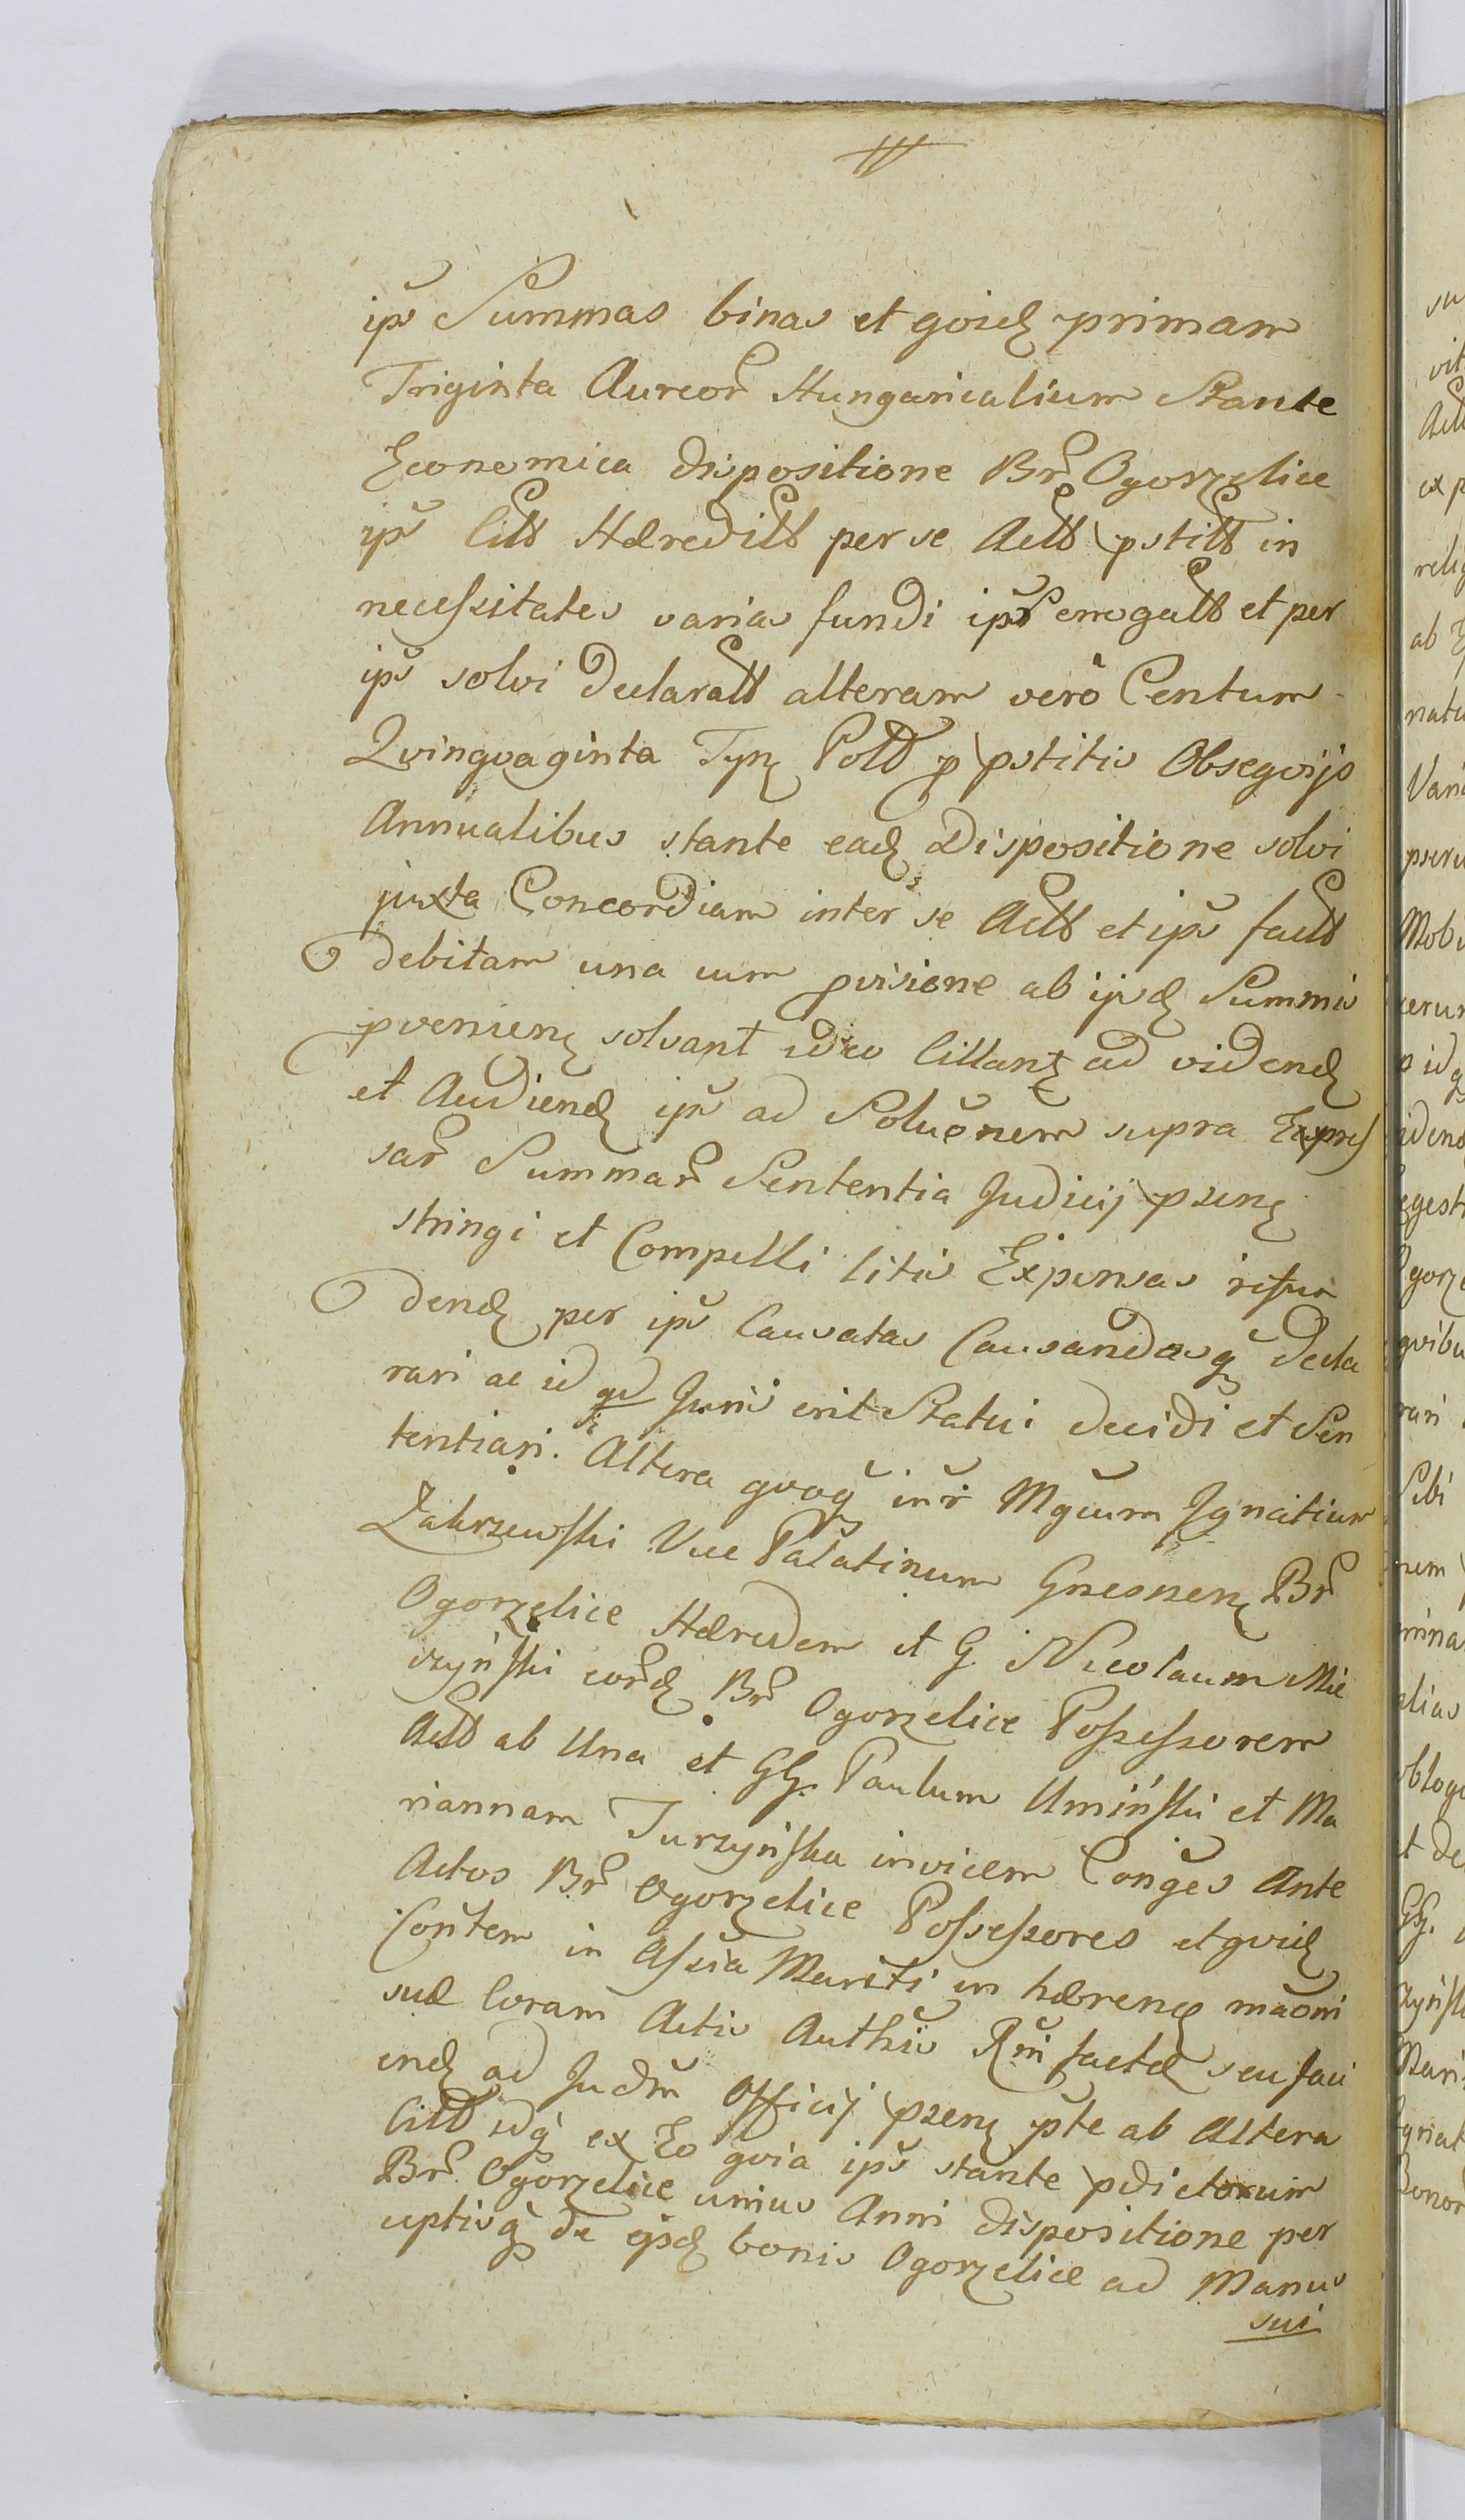 ips Summas binas et qvidem primam
Triginta Aureor Hungaricalium Stante
Economica dispositione Br Ogorzelice
ips Citt Hæreditt per se Actt pstitt in
necessitates varias fundi ips erogatt et per
ips solvi declaratt alteram verò Centum
Qvinqvaginta Tyn Poltt p pstitis Obseqvijs
Annualibus stante ead Dispositione solvi
juxta Concordiam inter se Actt et ips factt
debitam una cum pvisione ab ijsd Summis
pvenien solvant ideo Cittant ad vidend
et Audiend ips ad Soluōnem supra Expres
sar Summar Sententia Judicij pzen
stringi et Compelli litis Expensas refun
dend per ips Causatas Causandasq decla
rari ac id qd Juris erit Statui decidi et Sen
tentiari. Altera qvoq intr Mgcum Ignatium
Zakrzewski Vice Palatinum Gnesnen Br
Ogorzelice Hæredem et G. Nicolaum Mie
rzyński eord Br Ogorzelice Possessorem
Actt ab Una et GG. Paulum Umiński et Ma
riannam Turzyńska invicem Conges Ante
Actos Br Ogorzelice Possessores et qvid
Contem in Assia Mariti in hæren maoni
suæ Coram Actis Authis Rni factæ seu faci
end ad Judm Officij pzen pte ab Altera
Citt idq ex Eo qvia ips stante pdictorum
Br Ogorzelice unius Anni dispositione per
ceptisq de ejsd bonis Ogorzelice ad Manus
sui